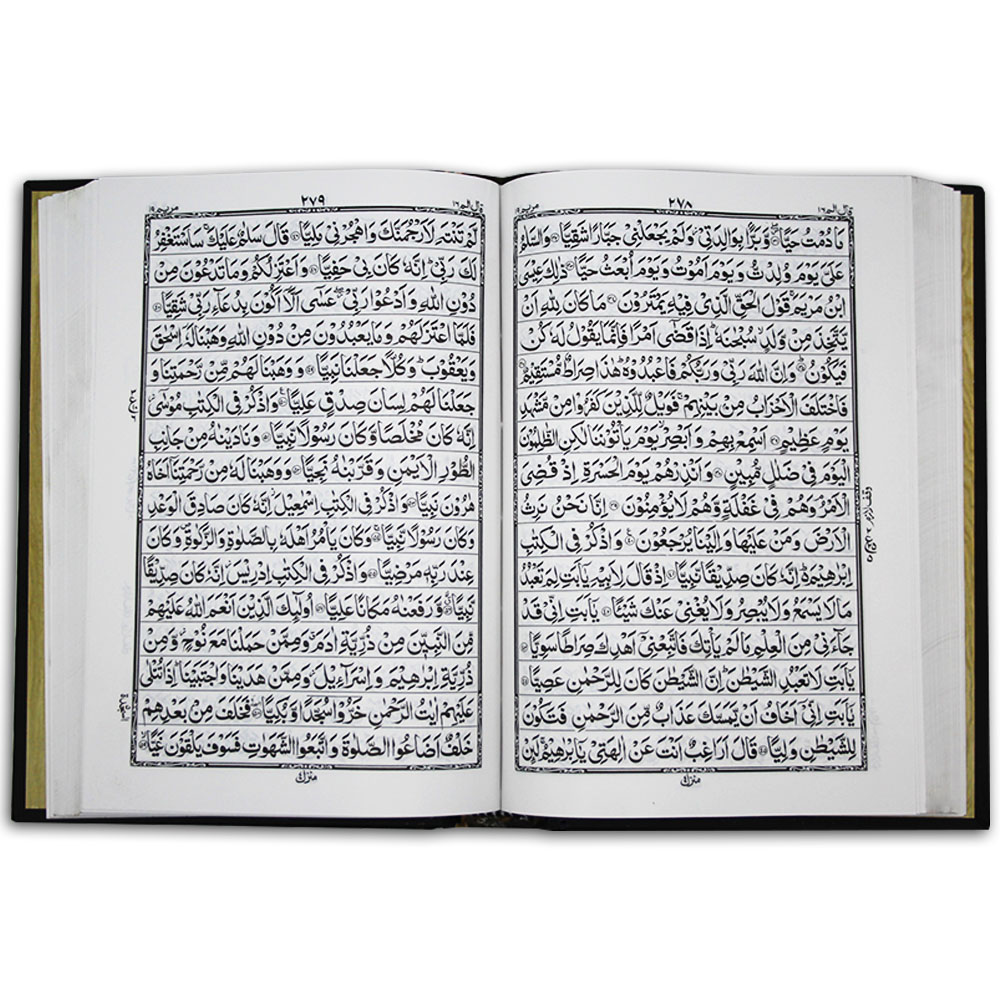 قال الم ١٦
٢٧٨
مریم ١٩
مَا دُمْتُ حَيًّا ۝۳۱ وَّبَرًّۢا بِوَالِدَتِيْ ؗ وَلَمْ يَجْعَلْنِيْ جَبَّارًا شَقِيًّا ۝۳۲ وَالسَّلٰمُ
عَلَيَّ يَوْمَ وُلِدْتُّ وَيَوْمَ اَمُوْتُ وَيَوْمَ اُبْعَثُ حَيًّا ۝۳۳ ذٰلِكَ عِيْسَى
ابْنُ مَرْيَمَ ۚ قَوْلَ الْحَقِّ الَّذِيْ فِيْهِ يَمْتَرُوْنَ ۝۳۴ مَا كَانَ لِلّٰهِ اَنْ
يَّتَّخِذَ مِنْ وَّلَدٍ ۙ سُبْحٰنَهٗ ؕ اِذَا قَضٰۤى اَمْرًا فَاِنَّمَا يَقُوْلُ لَهٗ كُنْ
فَيَكُوْنُ ۝۳۵ وَاِنَّ اللّٰهَ رَبِّيْ وَرَبُّكُمْ فَاعْبُدُوْهُ ؕ هٰذَا صِرَاطٌ مُّسْتَقِيْمٌ ۝۳۶
فَاخْتَلَفَ الْاَحْزَابُ مِنْۢ بَيْنِهِمْ ۚ فَوَيْلٌ لِّلَّذِيْنَ كَفَرُوْا مِنْ مَّشْهَدِ
يَوْمٍ عَظِيْمٍ ۝۳۷ اَسْمِعْ بِهِمْ وَاَبْصِرْ ۙ يَوْمَ يَاْتُوْنَنَا لٰكِنِ الظّٰلِمُوْنَ
الْيَوْمَ فِيْ ضَلٰلٍ مُّبِيْنٍ ۝۳۸ وَاَنْذِرْهُمْ يَوْمَ الْحَسْرَةِ اِذْ قُضِيَ
الْاَمْرُ ۘ وَهُمْ فِيْ غَفْلَةٍ وَّهُمْ لَا يُؤْمِنُوْنَ ۝۳۹ اِنَّا نَحْنُ نَرِثُ
الْاَرْضَ وَمَنْ عَلَيْهَا وَاِلَيْنَا يُرْجَعُوْنَ ۝۴۰ وَاذْكُرْ فِي الْكِتٰبِ
اِبْرٰهِيْمَ ؕ۬ اِنَّهٗ كَانَ صِدِّيْقًا نَّبِيًّا ۝۴۱ اِذْ قَالَ لِاَبِيْهِ يٰۤاَبَتِ لِمَ تَعْبُدُ
مَا لَا يَسْمَعُ وَلَا يُبْصِرُ وَلَا يُغْنِيْ عَنْكَ شَيْئًا ۝۴۲ يٰۤاَبَتِ اِنِّيْ قَدْ
جَآءَنِيْ مِنَ الْعِلْمِ مَا لَمْ يَاْتِكَ فَاتَّبِعْنِيْۤ اَهْدِكَ صِرَاطًا سَوِيًّا ۝۴۳
يٰۤاَبَتِ لَا تَعْبُدِ الشَّيْطٰنَ ؕ اِنَّ الشَّيْطٰنَ كَانَ لِلرَّحْمٰنِ عَصِيًّا ۝۴۴
يٰۤاَبَتِ اِنِّيْۤ اَخَافُ اَنْ يَّمَسَّكَ عَذَابٌ مِّنَ الرَّحْمٰنِ فَتَكُوْنَ
لِلشَّيْطٰنِ وَلِيًّا ۝۴۵ قَالَ اَرَاغِبٌ اَنْتَ عَنْ اٰلِهَتِيْ يٰۤاِبْرٰهِيْمُ ۚ لَئِنْ
منزل ٤
قال الم ١٦
٢٧٩
مریم ١٩
لَّمْ تَنْتَهِ لَاَرْجُمَنَّكَ وَاهْجُرْنِيْ مَلِيًّا ۝۴۶ قَالَ سَلٰمٌ عَلَيْكَ ۚ سَاَسْتَغْفِرُ
لَكَ رَبِّيْ ؕ اِنَّهٗ كَانَ بِيْ حَفِيًّا ۝۴۷ وَاَعْتَزِلُكُمْ وَمَا تَدْعُوْنَ مِنْ
دُوْنِ اللّٰهِ وَاَدْعُوْا رَبِّيْ ۖؗ عَسٰۤى اَلَّاۤ اَكُوْنَ بِدُعَآءِ رَبِّيْ شَقِيًّا ۝۴۸
فَلَمَّا اعْتَزَلَهُمْ وَمَا يَعْبُدُوْنَ مِنْ دُوْنِ اللّٰهِ ۙ وَهَبْنَا لَهٗۤ اِسْحٰقَ
وَيَعْقُوْبَ ؕ وَكُلًّا جَعَلْنَا نَبِيًّا ۝۴۹ وَوَهَبْنَا لَهُمْ مِّنْ رَّحْمَتِنَا وَ
جَعَلْنَا لَهُمْ لِسَانَ صِدْقٍ عَلِيًّا ۝۵۰ وَاذْكُرْ فِي الْكِتٰبِ مُوْسٰۤى ؗ
اِنَّهٗ كَانَ مُخْلَصًا وَّكَانَ رَسُوْلًا نَّبِيًّا ۝۵۱ وَنَادَيْنٰهُ مِنْ جَانِبِ
الطُّوْرِ الْاَيْمَنِ وَقَرَّبْنٰهُ نَجِيًّا ۝۵۲ وَوَهَبْنَا لَهٗ مِنْ رَّحْمَتِنَاۤ اَخَاهُ
هٰرُوْنَ نَبِيًّا ۝۵۳ وَاذْكُرْ فِي الْكِتٰبِ اِسْمٰعِيْلَ ؗ اِنَّهٗ كَانَ صَادِقَ الْوَعْدِ
وَكَانَ رَسُوْلًا نَّبِيًّا ۝۵۴ وَكَانَ يَاْمُرُ اَهْلَهٗ بِالصَّلٰوةِ وَالزَّكٰوةِ ۪ وَكَانَ
عِنْدَ رَبِّهٖ مَرْضِيًّا ۝۵۵ وَاذْكُرْ فِي الْكِتٰبِ اِدْرِيْسَ ؗ اِنَّهٗ كَانَ صِدِّيْقًا
نَّبِيًّا ۝۵۶ وَّرَفَعْنٰهُ مَكَانًا عَلِيًّا ۝۵۷ اُولٰٓئِكَ الَّذِيْنَ اَنْعَمَ اللّٰهُ عَلَيْهِمْ
مِّنَ النَّبِيّٖنَ مِنْ ذُرِّيَّةِ اٰدَمَ ۗ وَمِمَّنْ حَمَلْنَا مَعَ نُوْحٍ ؗ وَّمِنْ
ذُرِّيَّةِ اِبْرٰهِيْمَ وَاِسْرَآءِيْلَ ؗ وَمِمَّنْ هَدَيْنَا وَاجْتَبَيْنَا ؕ اِذَا تُتْلٰى
عَلَيْهِمْ اٰيٰتُ الرَّحْمٰنِ خَرُّوْا سُجَّدًا وَّبُكِيًّا ۝۵۸ فَخَلَفَ مِنْۢ بَعْدِهِمْ
خَلْفٌ اَضَاعُوا الصَّلٰوةَ وَاتَّبَعُوا الشَّهَوٰتِ فَسَوْفَ يَلْقَوْنَ غَيًّا ۝۵۹
السجدة
منزل ٤